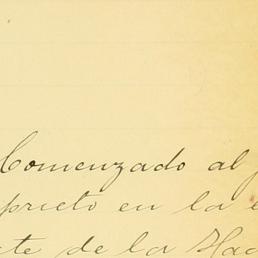 Comenzado al
prieto en la
te de la Hac